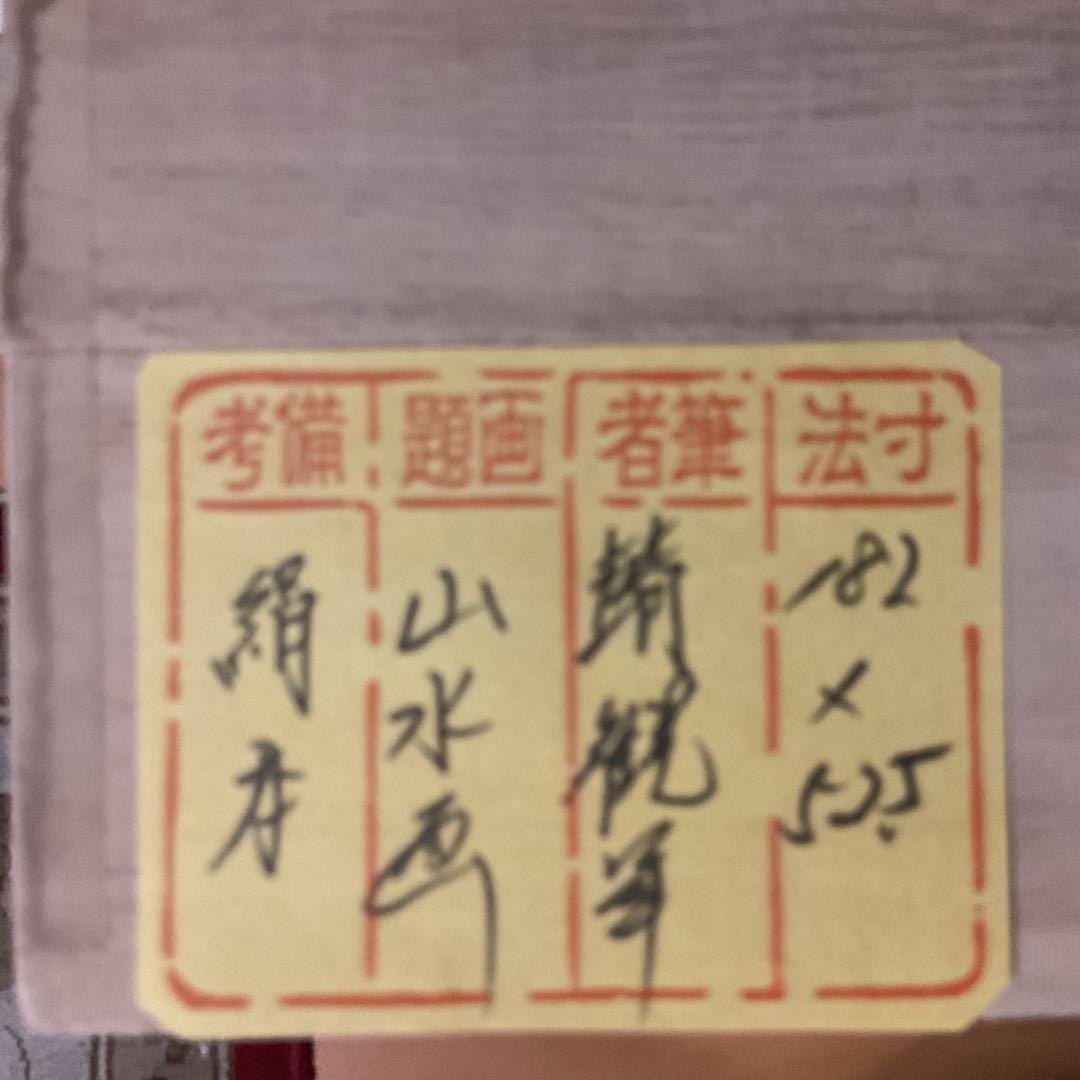 寸法
182
×
52.5
筆者
観
筆
画題
山水画
備考
絹本